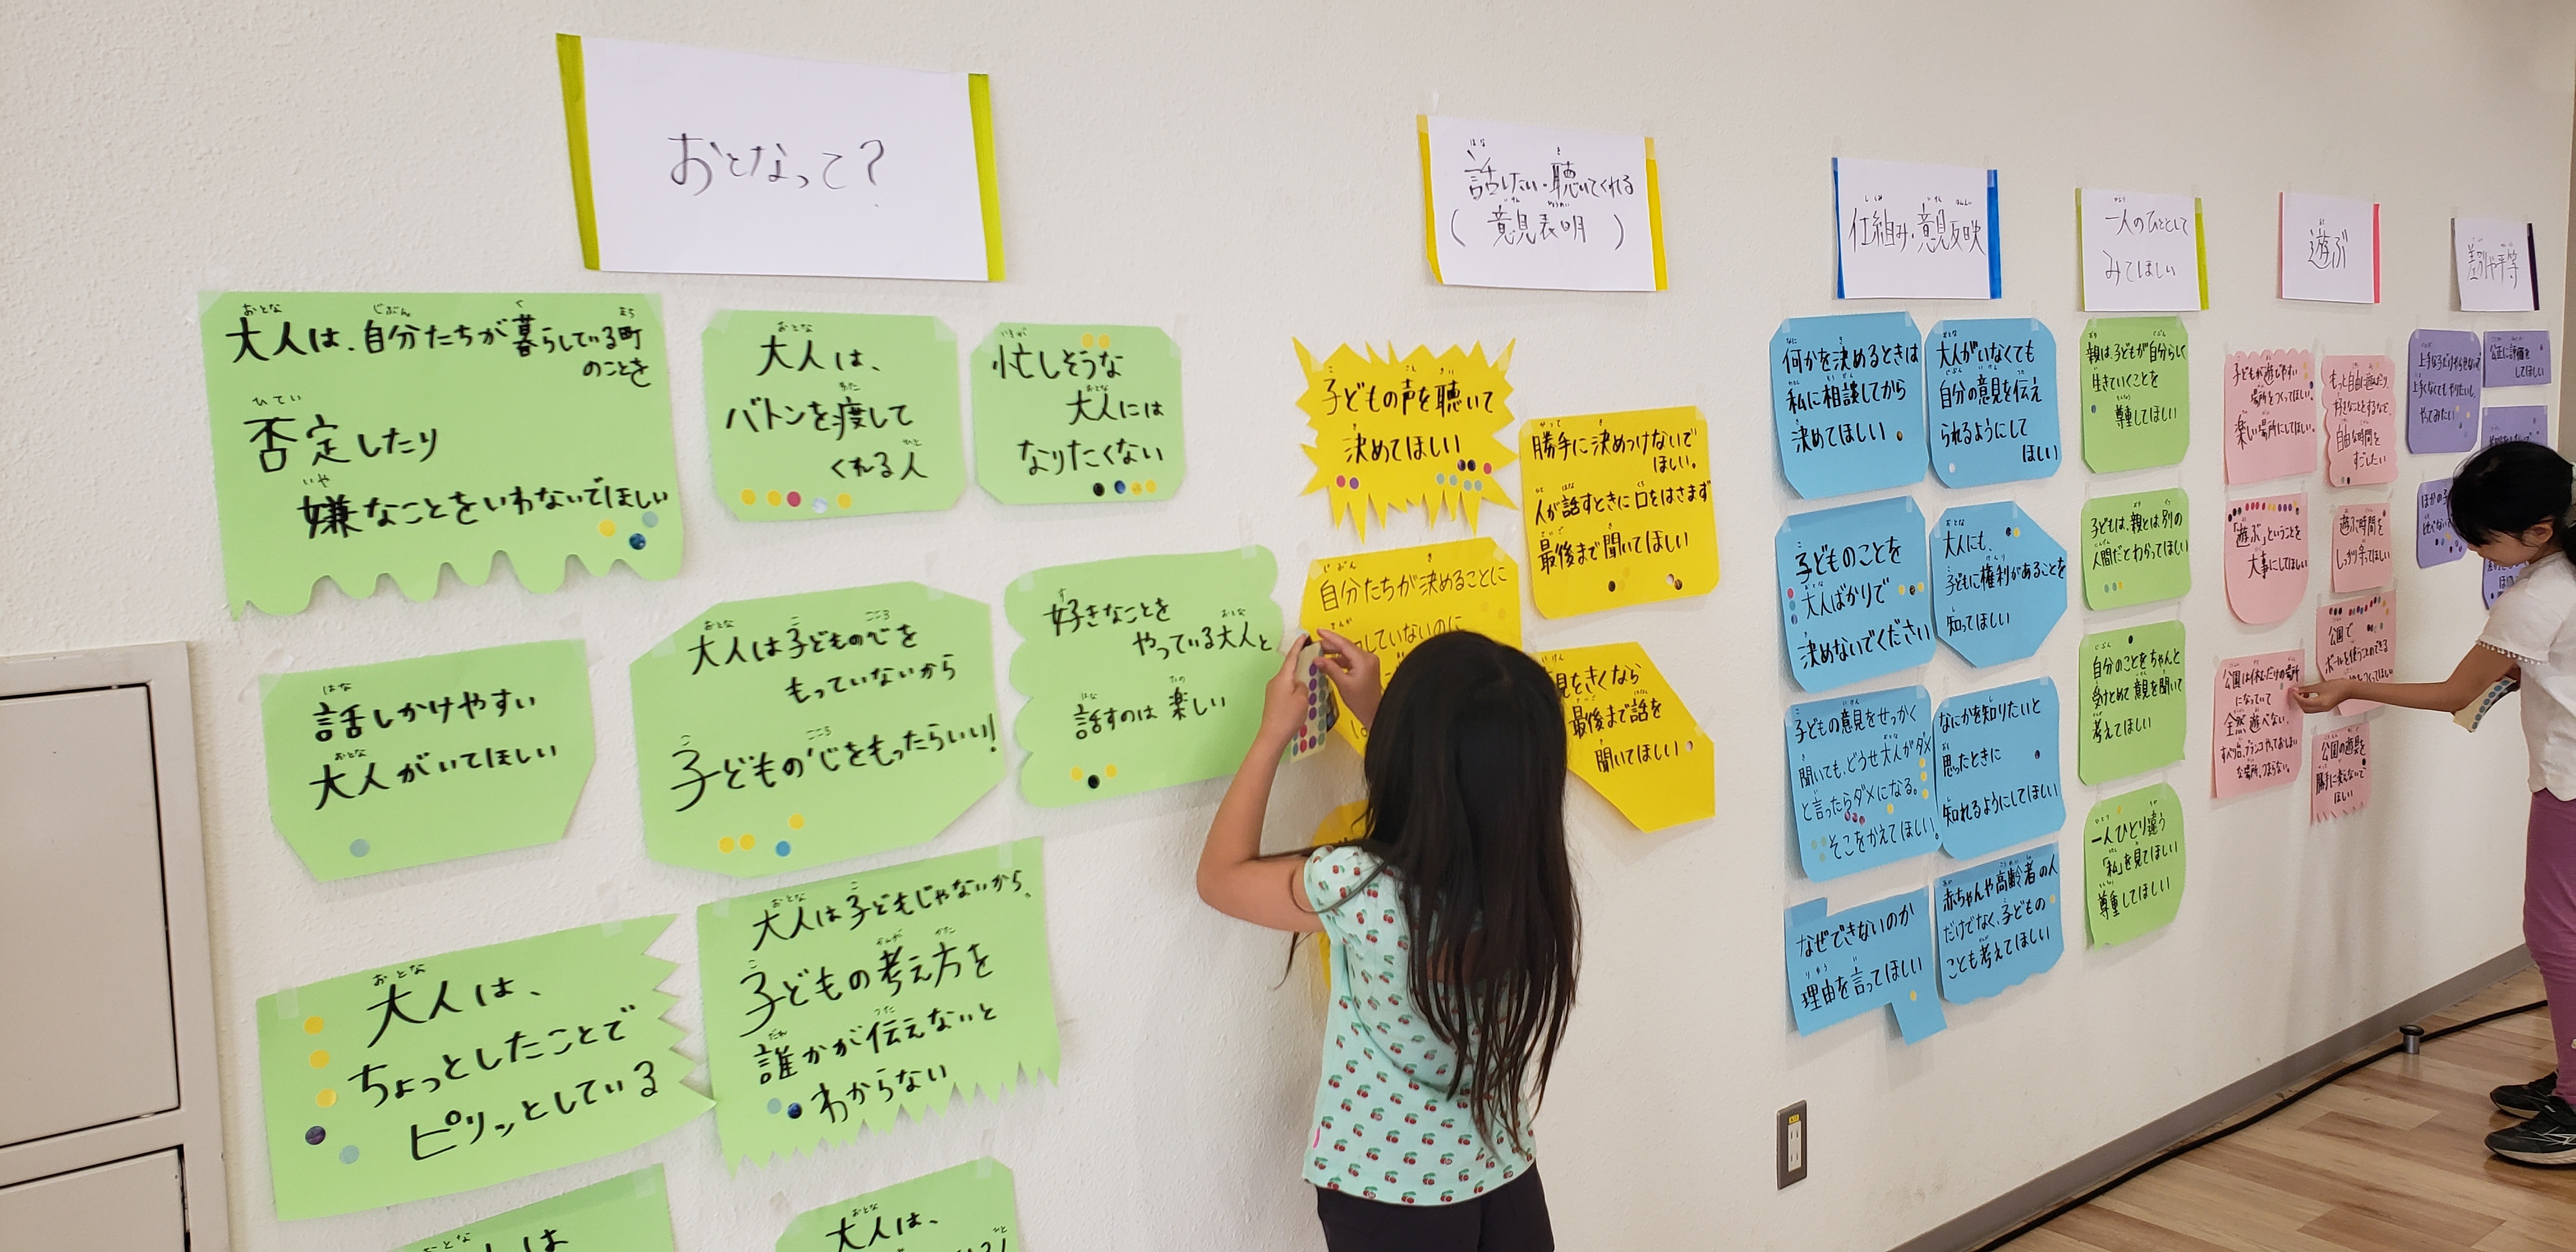 おとなって?
大人は、自分たちが暮らしている町
のことを
否定したり
嫌なことをいわないでほしい
大人は、
バトンを渡して
くれる人
忙しそうな
大人には
なりたくない
話しかけやすい
大人がいてほしい
大人は子どもの心を
もっていないから
子どもの心をもったらいい!
好きなことを
やっている大人と
話すのは楽しい
大人は、
ちょっとしたことで
ピリッとしている
大人は子どもじゃないから、
子どもの考え方を
誰かが伝えないと
わからない
大人は、
話したい・聴いてくれる
(意見表明)
子どもの声を聴いて
決めてほしい
勝手に決めつけないで
ほしい。
人が話すときに口をはさまず
最後まで聞いてほしい
自分たちが決めることに
していないのに
見をきくなら
最後まで話を
聞いてほしい
仕組み・意見反映
何かを決めるときは
私に相談してから
決めてほしい
大人がいなくても
自分の意見を伝え
られるようにして
ほしい
子どものことを
大人ばかりで
決めないでください
大人にも、
子どもに権利があることを
知ってほしい
子どもの意見をせっかく
聞いても、どうせ大人がダメ
と言ったらダメになる。
そこをかえてほしい。
なにかを知りたいと
思ったときに
知れるようにしてほしい
なぜできないのか
理由を言ってほしい
赤ちゃんや高齢者の人
だけでなく、子どもの
ことも考えてほしい
一人のひととして
みてほしい
親は、子どもが自分らしく
生きていくことを
尊重してほしい
子どもは、親とは別の
人間だとわかってほしい
自分のことをちゃんと
受けとめて意見を聞いて
考えてほしい
一人ひとり違う
「私」を見てほしい
尊重してほしい
遊ぶ
子どもが遊びやすい
場所をつくってほしい。
楽しい場所にしてほしい。
もっと自由に遊んだり、
好きなことをするなど、
自由な時間を
すごしたい
「遊ぶ」ということを
大事にしてほしい
遊ぶ時間を
しっかり守ってほしい
公園は休むだけの場所
になっていて
全然遊べない。
公園で
公園の遊具を
勝手に変えないで
ほしい
差別や平等
やってみたい
公正に評価を
してほしい